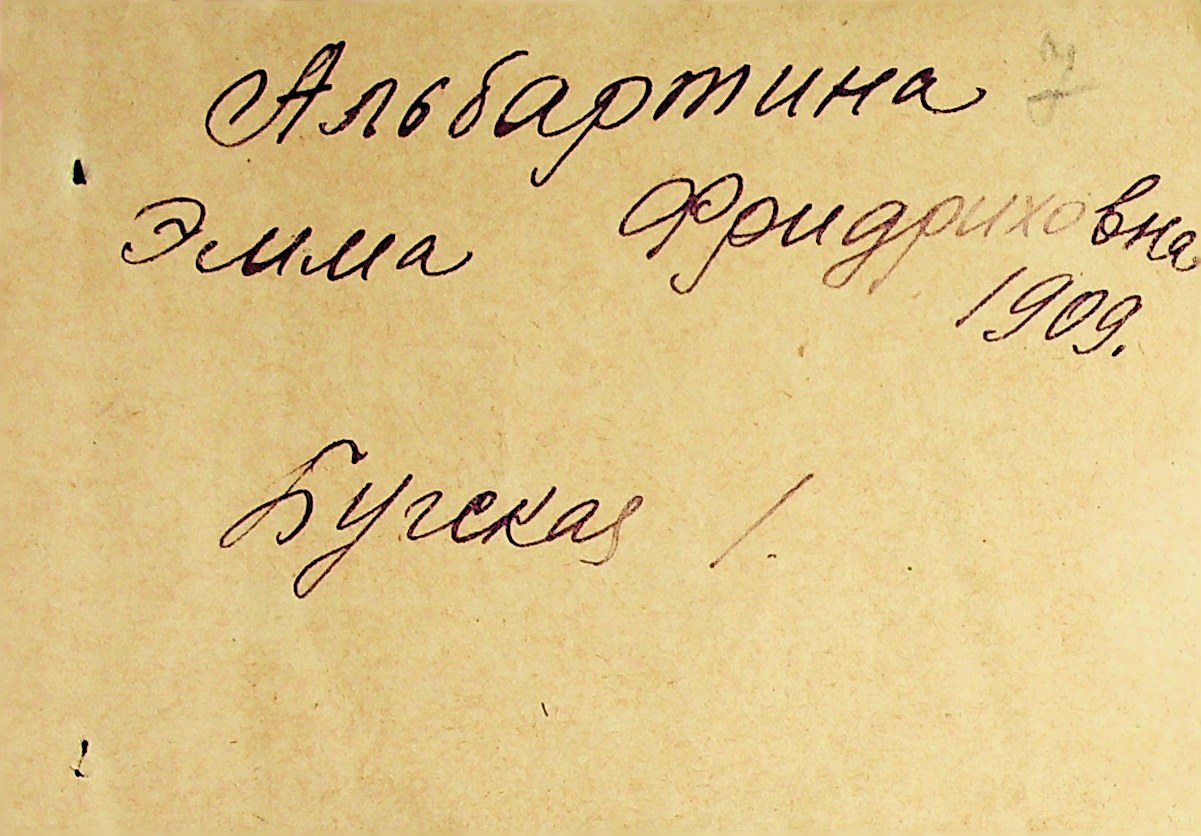 Альбартина 7
Эмма Фридриховна
1909.
Бугская 1.